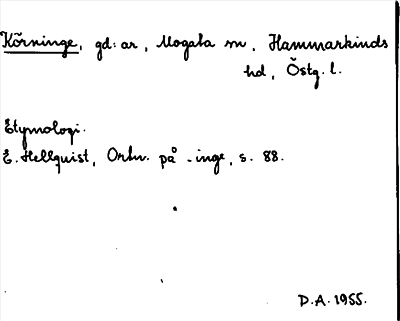 Körninge, gd:ar, Mogata sn, Hammarkinds
hd, Östg. l.
Etymologi.
E. Hellquist, Ortn. på -inge, s. 88.
D.A. 1955.